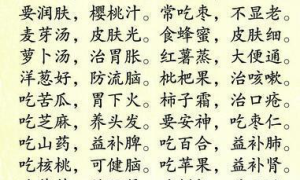 要润肤，樱桃汁。常吃枣，不显老。
麦芽汤，皮肤光。食蜂蜜，皮肤细。
萝卜汤，治胃胀。红薯蒸，大便通。
洋葱好，防流脑。枇杷果，治咳嗽。
吃苦瓜，胃下火。柿子霜，治口疮。
吃芝麻，养头发。要安神，吃枣仁。
吃山药，益补脾。吃百合，益补肺。
吃核桃，可健脑。吃苹果，益补肾。